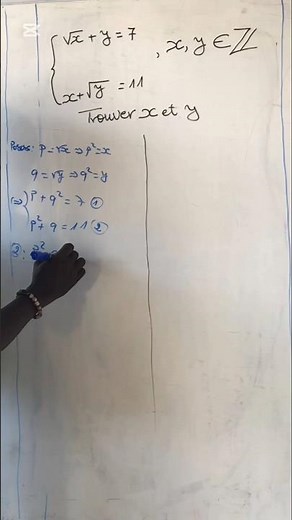 √x + y = 7 , x, y ∈ ℤ
x + √y = 11
Trouver x et y
Posons: p = √x ⇒ p² = x
q = √y ⇒ q² = y
(⇒) p + q² = 7 ①
p² + q = 11 ②
②: